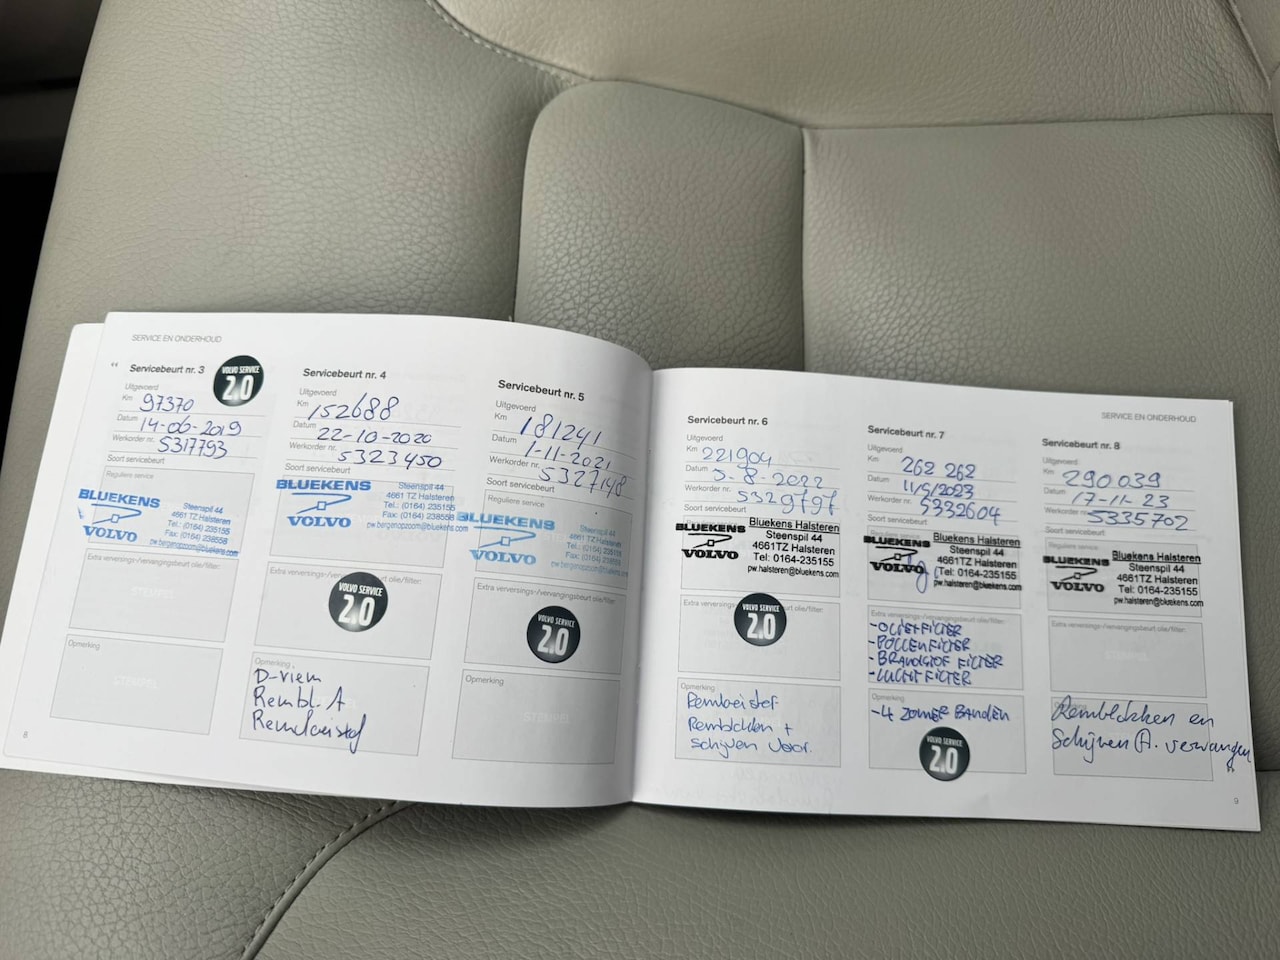 SERVICE EN ONDERHOUD
Servicebeurt nr. 3
VOLVO SERVICE
2.0
Uitgevoerd
Km 97370
Datum 14-06-2019
Werkorder nr. 5317793
Soort servicebeurt
Reguliere service
BLUEKENS
VOLVO
Steenspil 44
4661 TZ Halsteren
Tel.: (0164) 235155
Fax: (0164) 238558
pw.bergenopzoom@bluekens.com
Extra verversings-/vervangingsbeurt olie/filter:
STEMPEL
Opmerking
STEMPEL
8
Servicebeurt nr. 4
Uitgevoerd
Km 152688
Datum 22-10-2020
Werkorder nr. 5323450
Soort servicebeurt
BLUEKENS
VOLVO
Steenspil 44
4661 TZ Halsteren
Tel.: (0164) 235155
Fax: (0164) 238558
pw.bergenopzoom@bluekens.com
Extra verversings-/vervangingsbeurt olie/filter:
VOLVO SERVICE
2.0
Opmerking
D-riem
Rembl. A
Remvloeistof
Servicebeurt nr. 5
Uitgevoerd
Km 181241
Datum 1-11-2021
Werkorder nr. 5327148
Soort servicebeurt
Reguliere service
BLUEKENS
VOLVO
Steenspil 44
4661 TZ Halsteren
Tel.: (0164) 235155
Fax: (0164) 238558
pw.bergenopzoom@bluekens.com
Extra verversings-/vervangingsbeurt olie/filter:
VOLVO SERVICE
2.0
Opmerking
STEMPEL
SERVICE EN ONDERHOUD
Servicebeurt nr. 6
Uitgevoerd
Km 221904
Datum 3-8-2022
Werkorder nr. 5329797
Soort servicebeurt
BLUEKENS
VOLVO
Bluekens Halsteren
Steenspil 44
4661TZ Halsteren
Tel: 0164-235155
pw.halsteren@bluekens.com
Extra verversings-/vervangingsbeurt olie/filter:
VOLVO SERVICE
2.0
Opmerking
Remblokken +
schijven voor.
Servicebeurt nr. 7
Uitgevoerd
Km 262 262
Datum 11/5/2023
Werkorder nr. 5332604
Soort servicebeurt
BLUEKENS
VOLVO
Bluekens Halsteren
Steenspil 44
4661TZ Halsteren
Tel: 0164-235155
pw.halsteren@bluekens.com
Extra verversings-/vervangingsbeurt olie/filter:
- OLIEFILTER
- POLLENFILTER
- BRANDSTOF FILTER
- LUCHTFILTER
Opmerking
- 4 ZOMER BANDEN
VOLVO SERVICE
2.0
Servicebeurt nr. 8
Uitgevoerd
Km 290039
Datum 17-11-23
Werkorder nr. 5335702
Soort servicebeurt
Reguliere service
BLUEKENS
VOLVO
Bluekens Halsteren
Steenspil 44
4661TZ Halsteren
Tel: 0164-235155
pw.halsteren@bluekens.com
Extra verversings-/vervangingsbeurt olie/filter:
STEMPEL
Opmerking
Remblokken en
Schijven A. vervangen
9